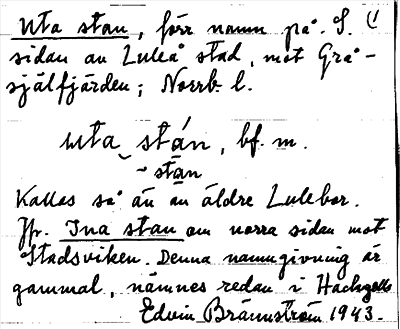 Uta stan, förr namn på S. (1
sidan av Luleå stad, mot Grå-
själfjärden; Norrb. l.
uta stán, bf. m.
- stan
Kallas så än av äldre Lulebor.
Jfr. Ina stan om norra sidan mot
Stadsviken. Denna namngivning är
gammal, nämnes redan i Hackzells
Edvin Brännström 1943.